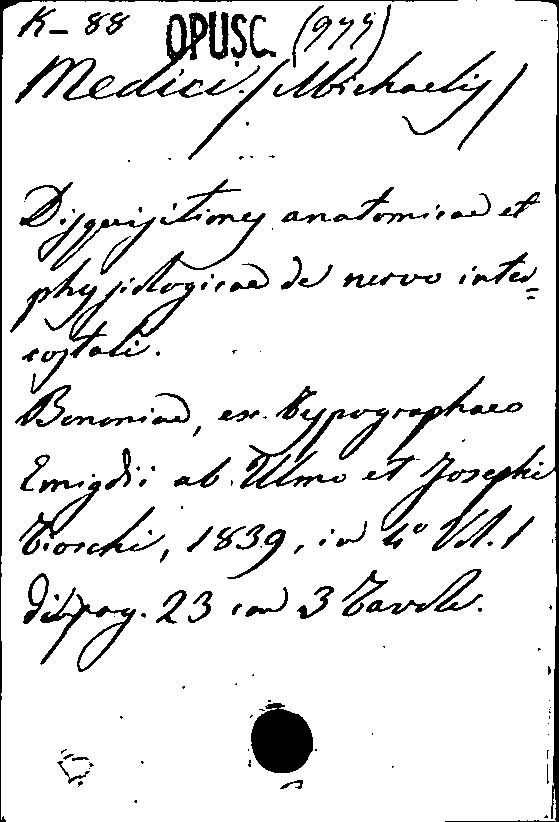 K-88 OPUSC. (975)
Medici (Michaelis)
Disquisitiones anatomicae et
physiologicae de nervo inter=
costali.
Bononiae, ex typographaeo
Emigdii ab Ulmo et Josephi
Tioschi, 1839, in 4° Vol. 1
di pag. 23 con 3 Tavole.